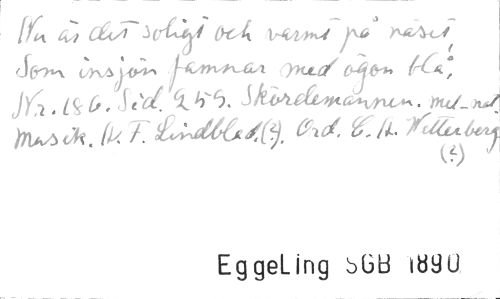 Nu är det soligt och varmt på näset,
Som insjön famnar med ögon blå,
Nr. 186. Sid. 259. Skördemannen. mel-not.
Musik. A. F. Lindblad.(?). Ord. C. A. Wetterberg
(?)
EggeLing SGB 1890